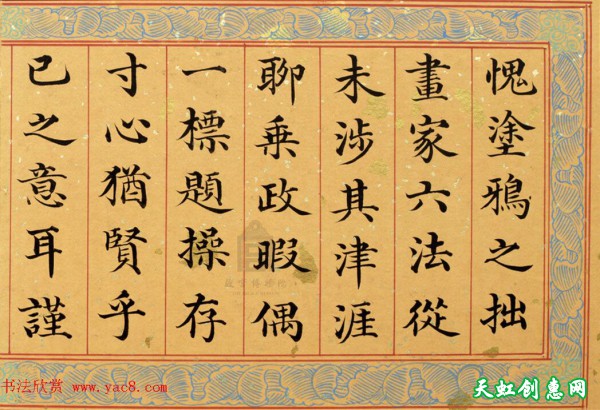 愧塗鴉之拙
畫家六法從
未涉其津涯
聊乗政暇偶
一標題操存
寸心猶賢乎
已之意耳謹
书法欣赏 www.yac8.com
天虹创惠网